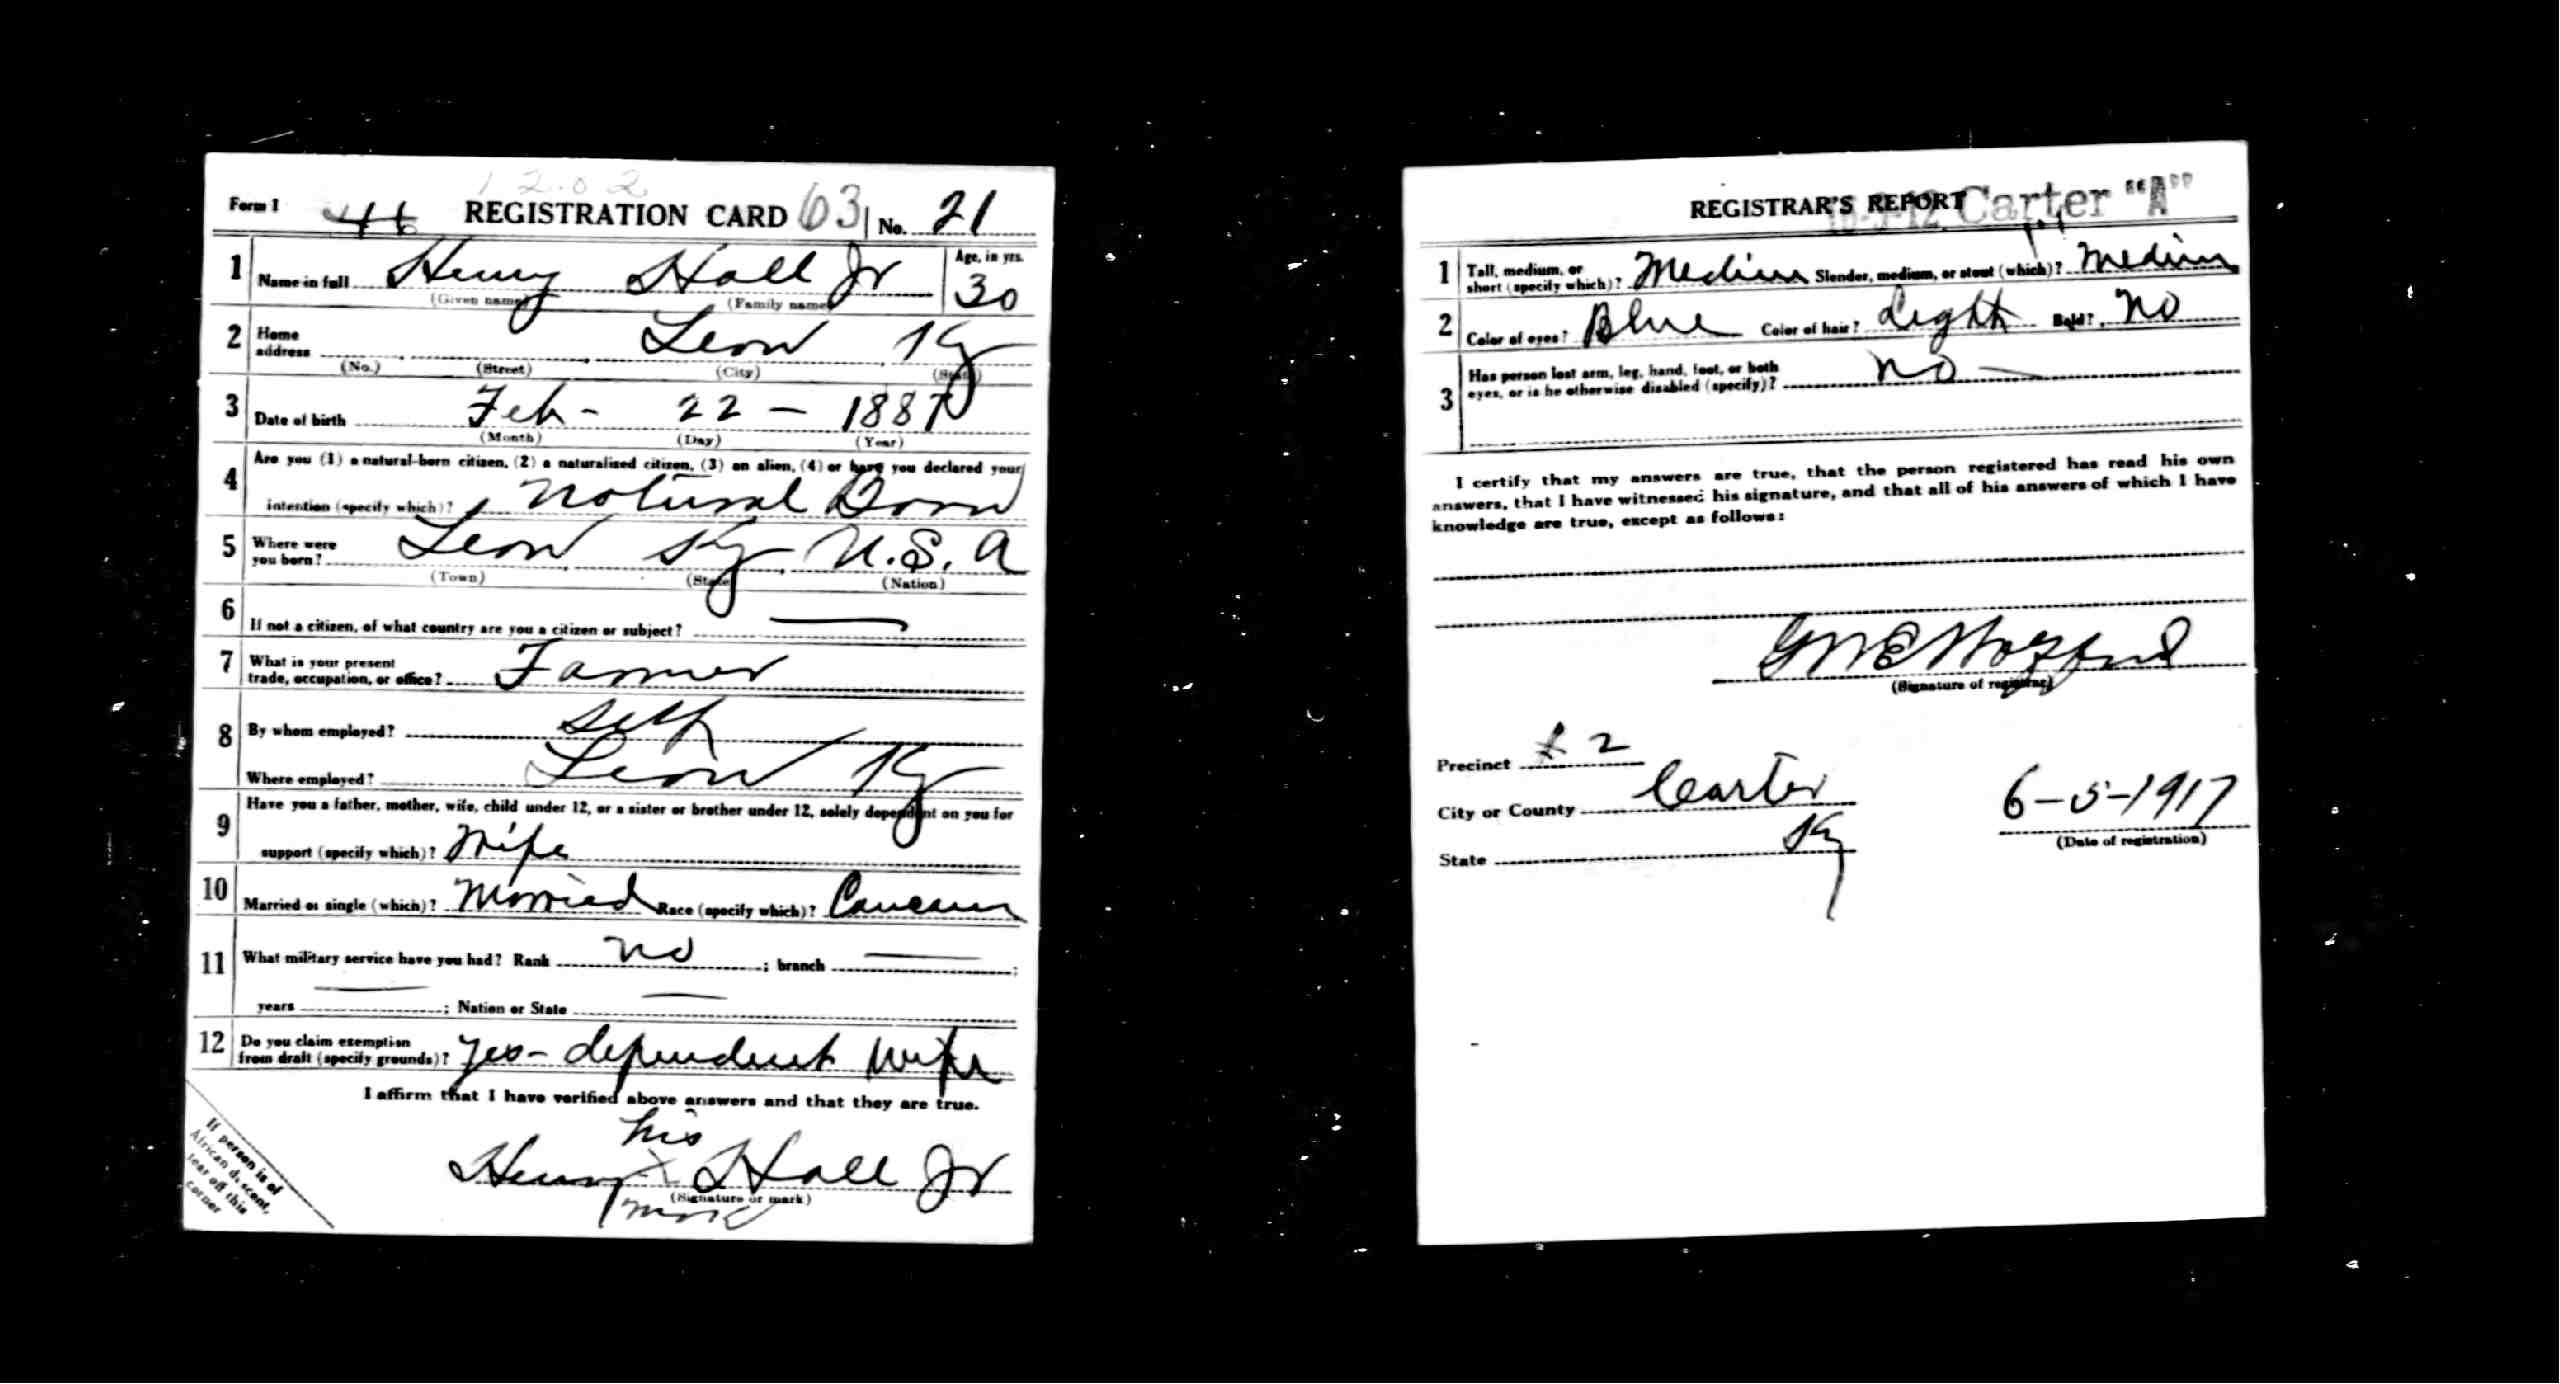 1202
Form 1 46 REGISTRATION CARD 63 No. 21
1 Name in full Henry Hall Jr Age, in yrs. 30
(Given name) (Family name)
2 Home address Leon Ky
(No.) (Street) (City) (State)
3 Date of birth Feb - 22 - 1887
(Month) (Day) (Year)
4 Are you (1) a natural-born citizen, (2) a naturalized citizen, (3) an alien, (4) or have you declared your
intention (specify which)? Natural Born
5 Where were you born? Leon Ky U.S.A
(Town) (State) (Nation)
6 If not a citizen, of what country are you a citizen or subject? —
7 What is your present trade, occupation, or office? Farmer
8 By whom employed? Self
Where employed? Leon Ky
9 Have you a father, mother, wife, child under 12, or a sister or brother under 12, solely dependent on you for
support (specify which)? Wife
10 Married or single (which)? Married Race (specify which)?
11 What military service have you had? Rank no ; branch — ;
years — ; Nation or State —
12 Do you claim exemption from draft (specify grounds)? Yes - dependent wife
I affirm that I have verified above answers and that they are true.
his
Henry X Hall Jr
(Signature or mark)
mark
If person is of
African descent,
tear off this
corner
REGISTRAR'S REPORT Carter "A"
1 Tall, medium, or short (specify which)? Medium Slender, medium, or stout (which)? Medium
2 Color of eyes? Blue Color of hair? Light Bald? No
3 Has person lost arm, leg, hand, foot, or both
eyes, or is he otherwise disabled (specify)? No —
I certify that my answers are true, that the person registered has read his own
answers, that I have witnessed his signature, and that all of his answers of which I have
knowledge are true, except as follows:
(Signature of registrar)
Precinct # 2
City or County Carter
State Ky
6-5-1917
(Date of registration)